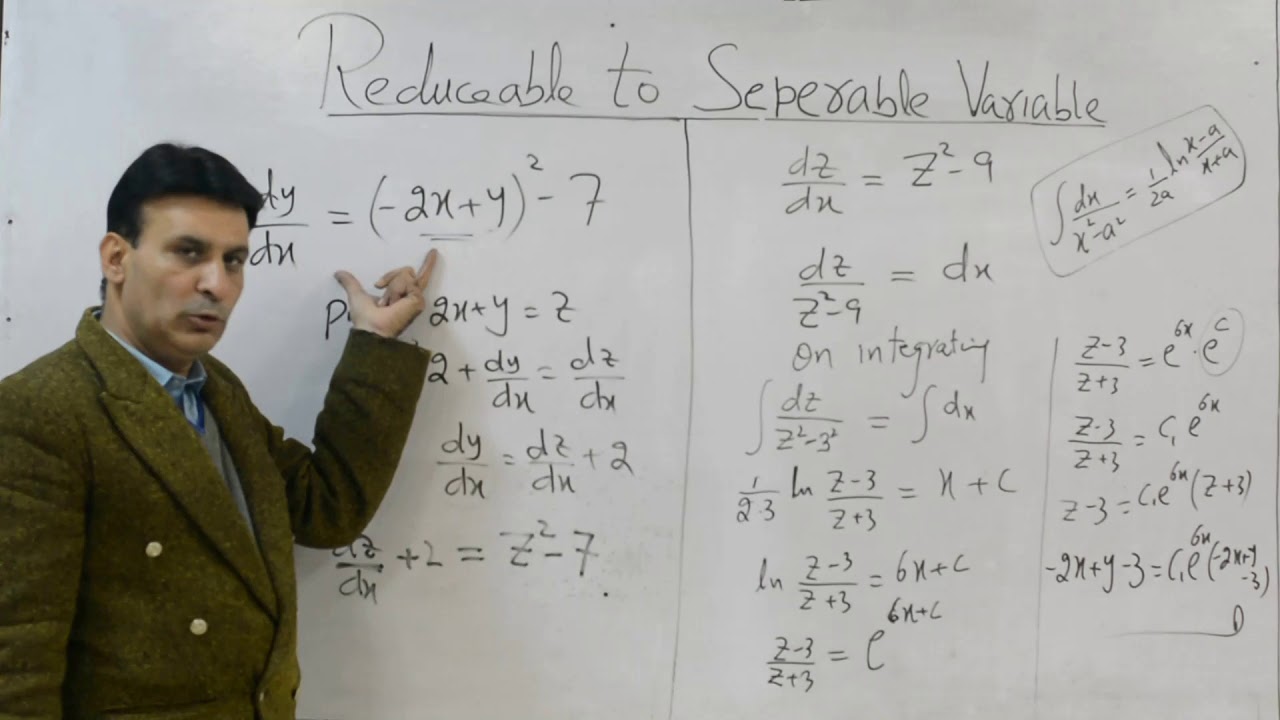 Reduceable to Seperable Variable
dy/dx = (-2x+y)² - 7
2x+y = z
2 + dy/dx = dz/dx
dy/dx = dz/dx + 2
dz/dx + 2 = z² - 7
dz/dx = z² - 9
dz/z²-9 = dx
On integrating
∫ dz/z²-3² = ∫ dx
1/2·3 ln z-3/z+3 = x + c
ln z-3/z+3 = 6x + c
z-3/z+3 = e^6x+c
∫ dx/x²-a² = 1/2a ln x-a/x+a
z-3/z+3 = e^6x · e^c
z-3/z+3 = c₁e^6x
z-3 = c₁e^6x (z+3)
-2x+y-3 = c₁e^6x (-2x+y
-3)